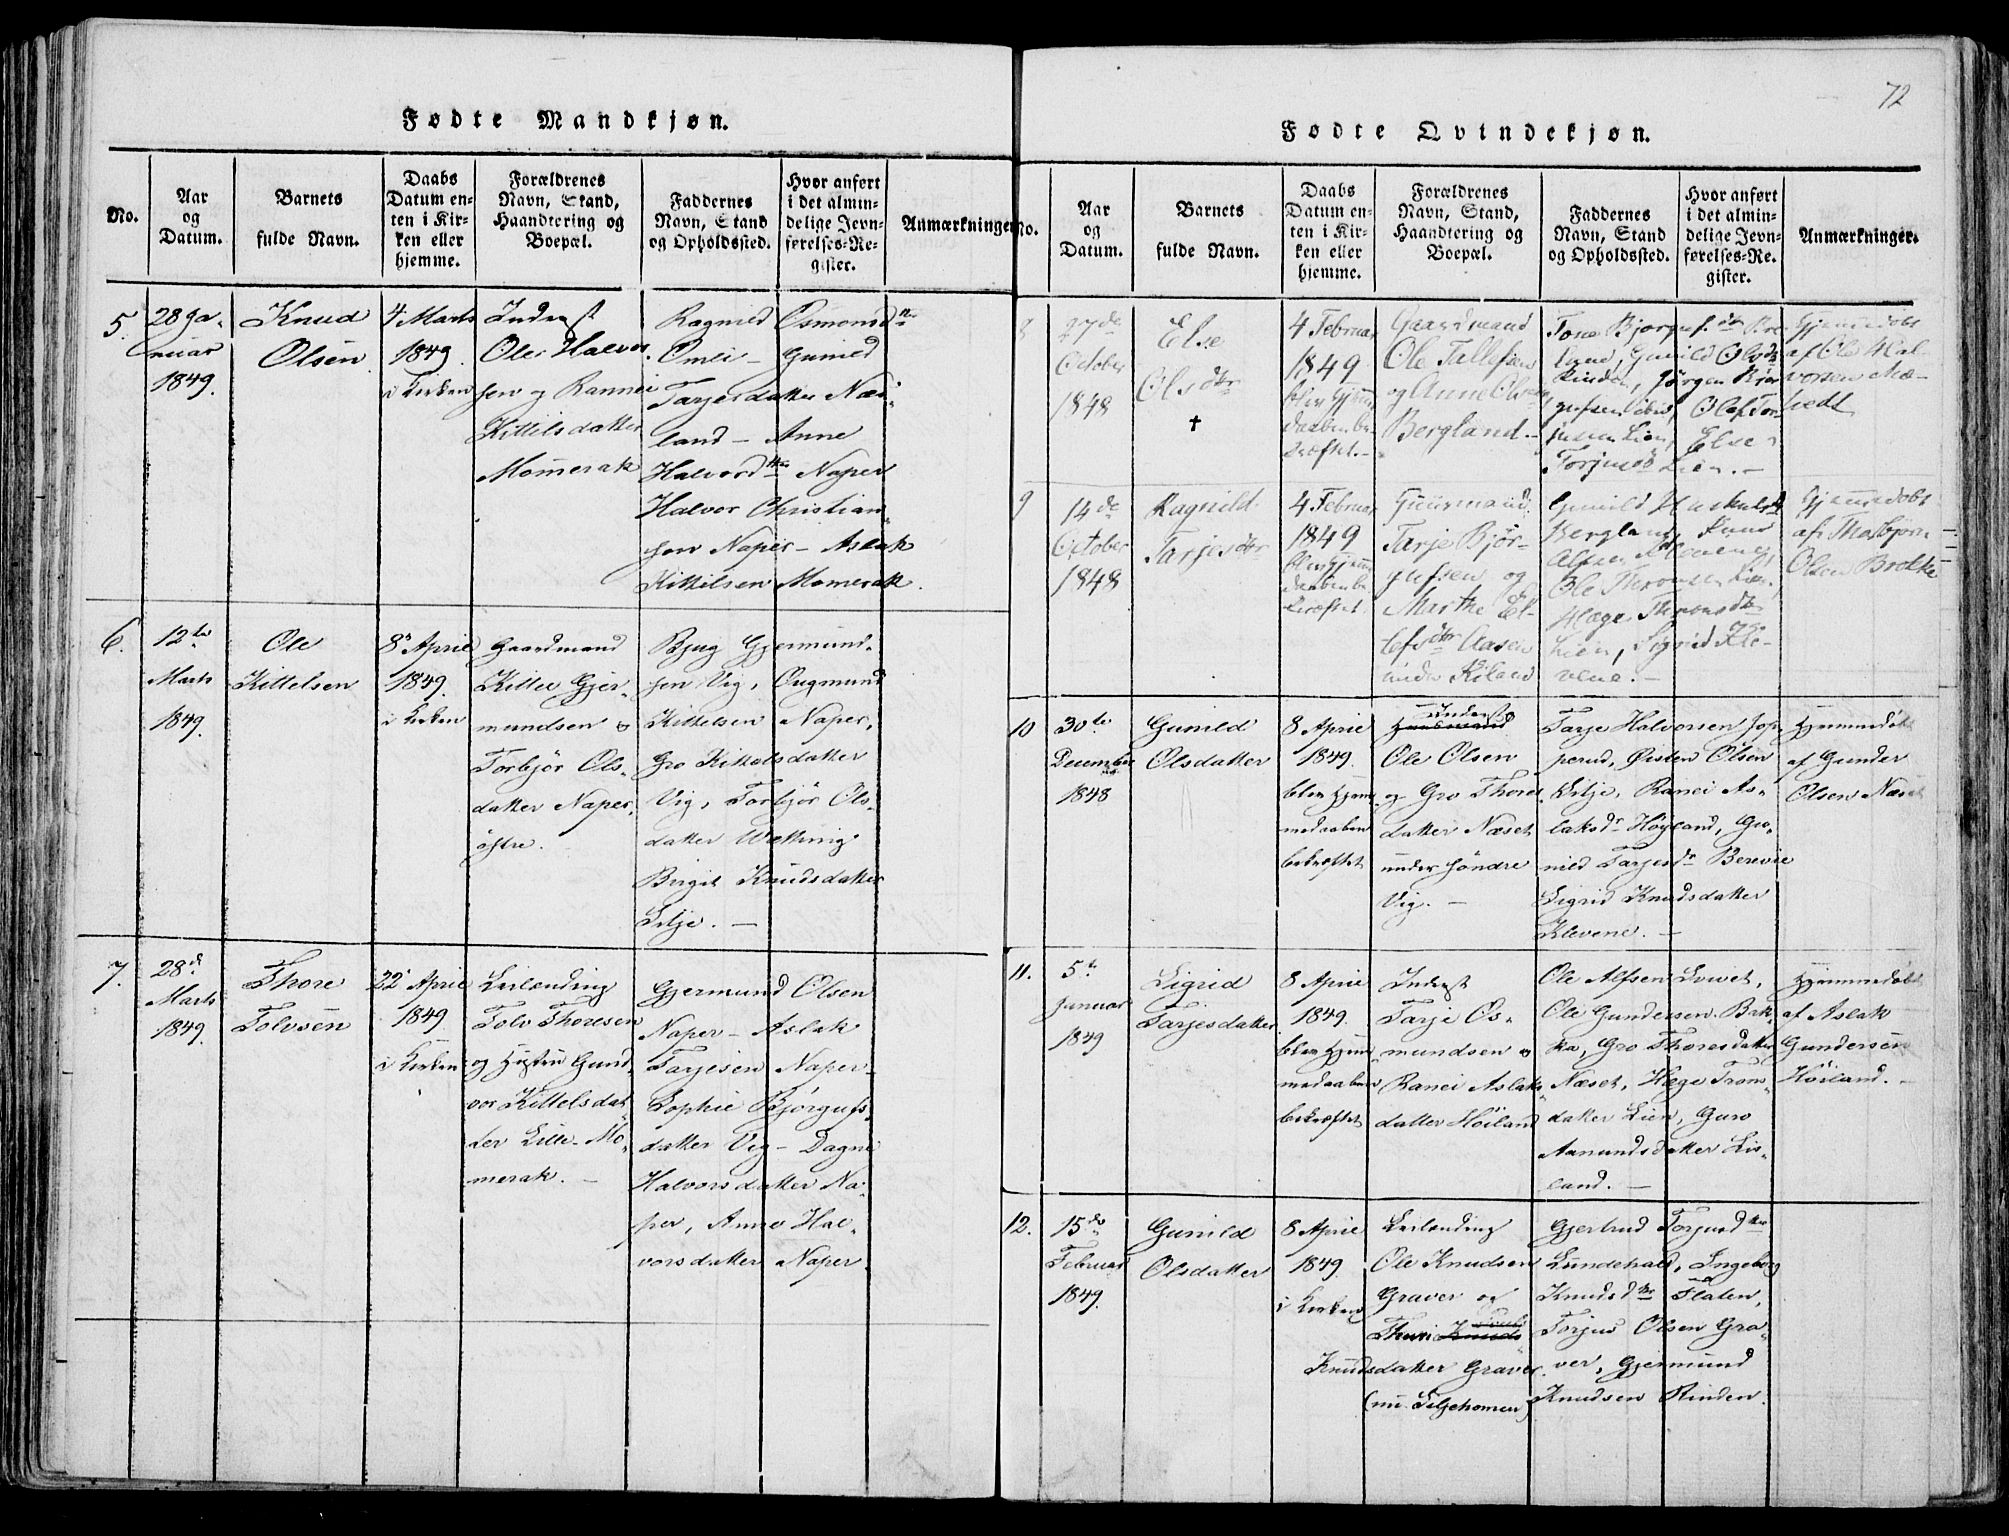 72
Fødte Mandkjøn.
No.
Aar
og
Datum.
Barnets
fulde Navn.
Daabs
Datum en-
ten i Kir-
ken eller
hjemme.
Forældrenes
Navn, Stand,
Haandtering og
Boepæl.
Faddernes
Navn, Stand
og Opholdssted.
Hvor anført
i det almin-
delige Jevn-
førelses-Re-
gister.
Anmærkninger.
5.
28 Ja-
nuar
1849.
Knud
Olsen
4 Marts
1849.
i Kirken
Inderst
Ole Halvor-
sen og Rannei
Kittilsdatter
Momerak
Ragnild Osmonsd
Omli - Gunild
Tarjesdatter Næs-
land - Anne
Halvord Naper
Halvor Christian-
sen Naper - Aslak
Kittilsen Momerak.
6.
12te
Marts
1849.
Ole
Kittelsen
8 April
1849.
i Kirken
Gaardmand
Kittel Gjer-
mundsen &
Torbjør Ols-
datter Naper,
østre.
Bjug Gjermund-
sen Vig, Ougmund
Kittelsen Naper,
Gro Kittelsdatter
Vig, Torbjør Ols-
datter
Birgit Knudsdatter
Lilje. -
7.
28d
Marts
1849.
Thore
Tolvsen
22 April
1849
i Kirken
Leilænding
Tolv Thoresen
og Hustru Gund-
vor Kittelsdat-
ter Lille-Mo-
merak. -
Gjermund Olsen
Naper - Aslak
Tarjesen Naper -
Sophie Bjørgufs-
datter Vig - Dagne
Halvorsdatter Na-
per, Anne Hal-
vorsdatter Naper
Fødte Qvindekjøn.
No.
Aar
og
Datum.
Barnets
fulde Navn.
Daabs
Datum en-
ten i Kir-
ken eller
hjemme.
Forældrenes
Navn, Stand,
Haandtering og
Boepæl.
Faddernes
Navn, Stand
og Opholdssted.
Hvor anført
i det almin-
delige Jevn-
førelses-Re-
gister.
Anmærkninger.
8
27de
October
1848
Else
Olsdtr
✝
4 Februar
1849
blev Hjemme
daaben be-
kræftet. -
Gaardmand
Ole Tellefsen
og Anne Olsd
Bergland. -
Tone Bjorgufsdtr
land, Gunild Olsd
Rinden, Jørgen Bjør-
gufsen ibid, Olaf Tor-
jusen Lien, Else
Torjusd Lien. -
Hjemmedøbt
af Ole Hal-
vorsen Mæ-
tvedt
9
14de
October
1848
Ragnild
Tarjesdtr
4 Februar
1849
blev Hjemme
daaben be-
kræftet.
Huusmand
Tarje Bjør-
gufsen og
Marthe El-
lefsdtr Aasen
under Kiland
Gunild
Bergland, Knud
Alfsen
Ole Thronsen Lien,
Hæge Thronsdtr
Lien, Sigrid Kle-
vene. -
Hjemmedøbt
af Thorbjørn
Olsen Brokke
10
30te
December
1848
Gunild
Olsdatter
8 April
1849.
blev Hjem-
medaaben
bekræftet
Inderst
Huusmand
Ole Olsen
og Gro Thores-
datter Næset
under søndre
Vig. -
Tarje Halvorsen Jep-
perud, Øisten Olsen
Lilje, Ranei As-
laksdr Høyland, Gu-
nild Tarjesdr Berevie
Sigrid Knudsdatter
Klevene. -
Hjemmedøbt
af Gunder
Olsen Næset
11.
5te
Januar
1849
Sigrid
Tarjesdatter
8 April
1849.
blev Hjem-
medaaben
bekræftet
Inderst
Tarje Os-
mundsen &
Ranei Aslaks-
datter Høiland
Ole Alfsen
Ole Gundersen Bak-
ka, Gro Thoresdatter
Næset, Hæge Trons-
datter Lien, Guro
Aanundsdatter Lis-
land. -
Hjemmedøbt
af Aslak
Gundersen
Høiland. -
12.
15de
Februar
1849.
Gunild
Olsdatter
8 April
1849.
i Kirken
Leilænding
Ole Knudsen
Graver og
Thuri Knuds
Knudsdatter Graver
(nu Liljehomen)
Gjertrud Torjusd
Lundehald, Ingeborg
Knudsd Flaten,
Torjus Olsen Gra-
ver, Gjermund
Knudsen Rinden.